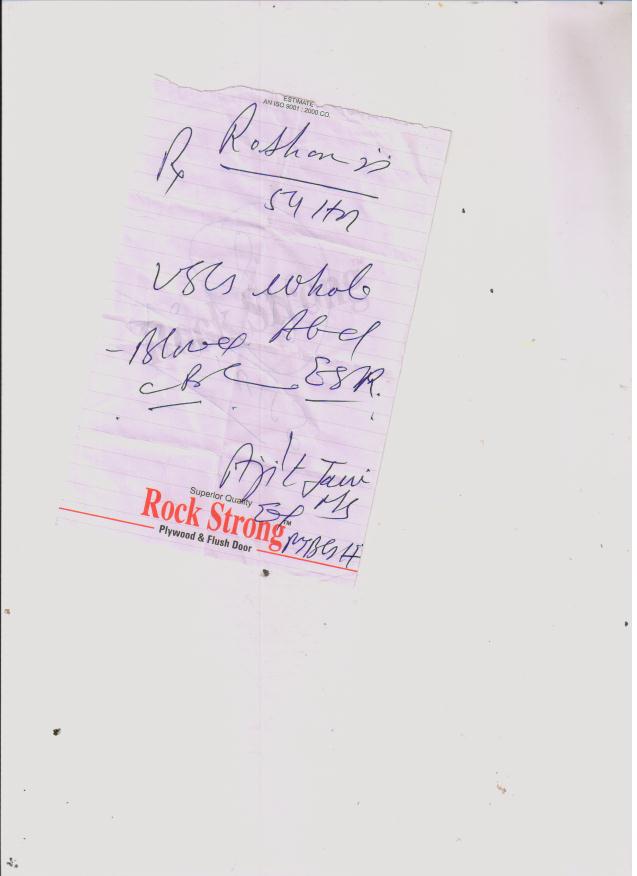 ESTIMATE
AN ISO 9001 : 2000 CO.
Rx Roshan
54
USG whole
Abd
CBC ESR.
Ajit Jain
MS
Superior Quality
Rock Strong™
Plywood & Flush Door